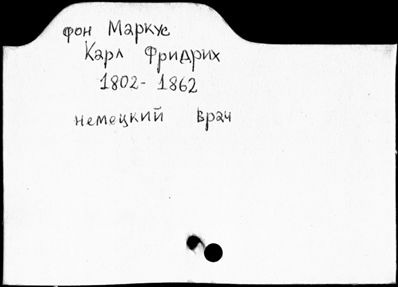 фон Маркус
Карл Фридрих
1802-1862
немецкий врач